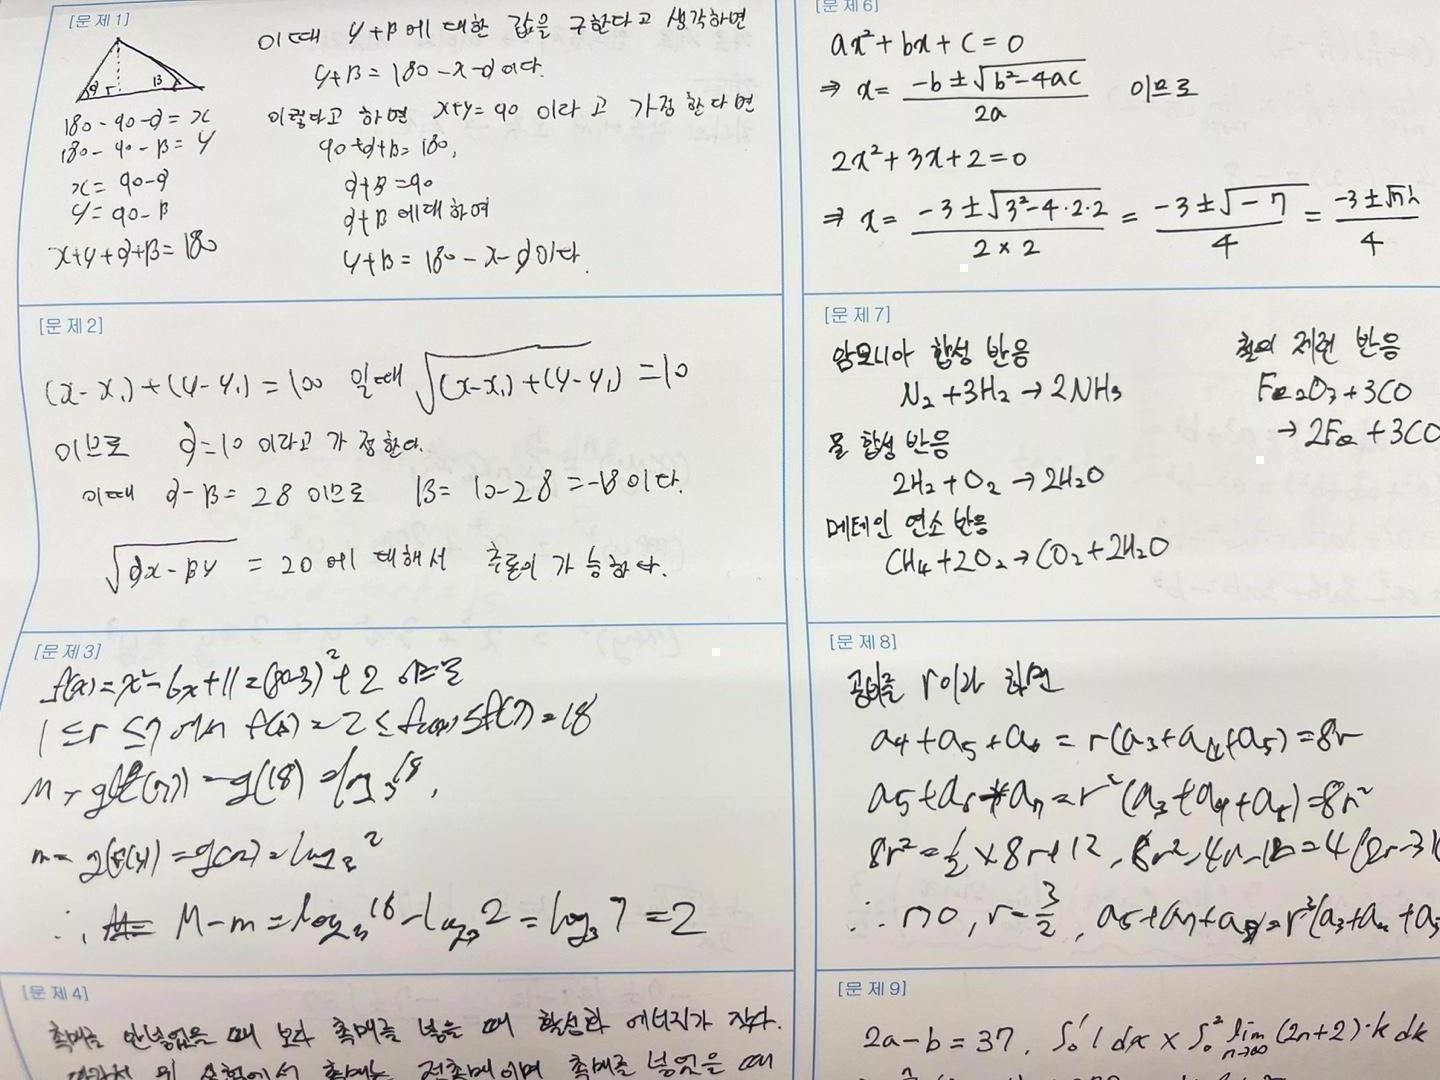 [문제1]
α
β
180-90-α=x
180-90-β=y
x=90-α
y=90-β
x+y+α+β=180
이때 y+β에 대한 값을 구한다고 생각하면
y+β=180-x-α이다.
이렇다고 하면 x+y=90 이라고 가정한다면
90+α+β=180,
α+β=90
α+β에 대하여
y+β=180-x-α이다.
[문제2]
(x-x₁)+(y-y₁)=100 일때 √(x-x₁)+(y-y₁) =10
이므로 α=10이라고 가정한다.
이때 α-β=28이므로 β=10-28=-18이다.
√αx-βy =20에 대해서 추론이 가능하다.
[문제3]
f(x)=x²-6x+11=(x-3)²+2 이므로
1≤x≤7에서 f(3)=2≤f(x)≤f(7)=18
M=g(f(7))=g(18)=log₃18,
m=g(f(3))=g(2)=log₃2
∴ M-m=log₃18-log₃2=log₃9=2
[문제4]
촉매를 안넣었을 때 보다 촉매를 넣을 때 활성화 에너지가 작다.
촉매는 정촉매이며 촉매를 넣었을 때
[문제6]
ax²+bx+c=0
⇒ x= (-b±√b²-4ac)/2a 이므로
2x²+3x+2=0
⇒ x= (-3±√3²-4·2·2)/(2×2) = (-3±√-7)/4 = (-3±√7i)/4
[문제7]
암모니아 합성 반응
N₂+3H₂→2NH₃
물 합성 반응
2H₂+O₂→2H₂O
메테인 연소 반응
CH₄+2O₂→CO₂+2H₂O
철의 제련 반응
Fe₂O₃+3CO
→2Fe+3CO
[문제8]
공비를 r이라 하면
a₄+a₅+a₆=r(a₃+a₄+a₅)=8r
a₅+a₆+a₇=r²(a₃+a₄+a₅)=8r²
8r²=1/2×8r+12, 8r²-4r-12=4(2r-3)(
∴ r>0, r=3/2, a₆+a₇+a₈=r³(a₃+a₄+a₅
[문제9]
2a-b=37, ∫₀¹ 1 dx × ∫₀² lim n→∞ (2n+2)·k dk